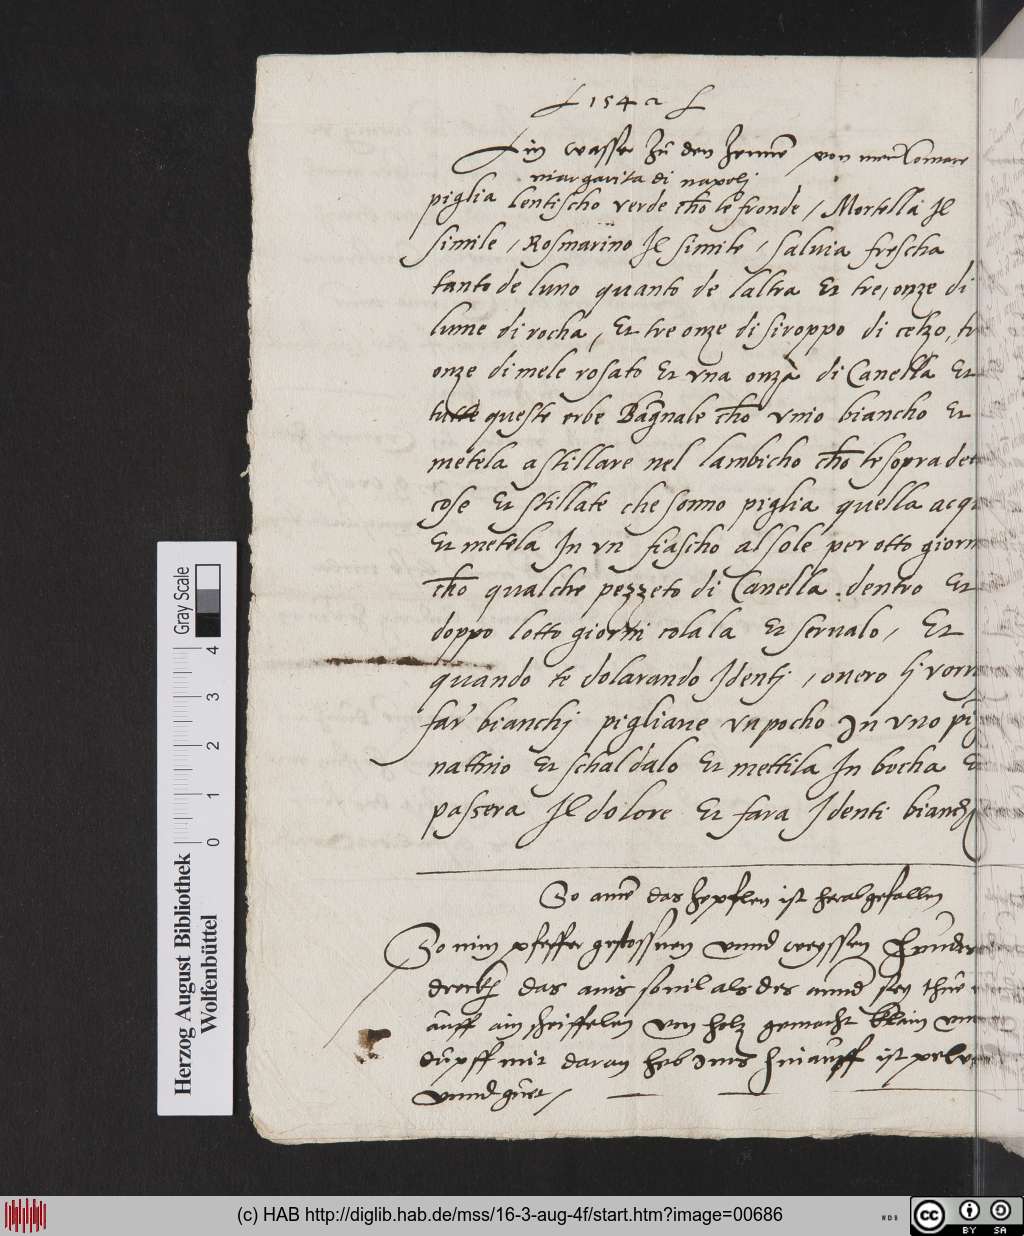 1542
Ein wasser Zu den Zennen, von
margarita di napolj
piglia lentischo verde cho le fronde / Mortella Il
simile / Rosmarino Il simile / saluia frescha
tanto de luno quanto de laltra Et tre onze di
lume di rocha, Et tre onze di siroppo di celzo, tr
onze di mele rosato Et vna onza di Canella Et
tutte queste erbe Bagnale cho vino biancho Et
metela a stillare nel lambicho cho le sopra de
cose Et stillate che sonno piglia quella acqu
Et metela In vn fiascho al sole per otto giorn
cho qualche pezzeto di Canella dentro Et
doppo lotto giorni colala Et serualo, Et
quando te dolarando Identj, ouero lj vorr
far bianchj pigliane vn pocho In vno pi
nattino Et schaldalo Et mettila In bocha E
passera Il dolore Et fara Identi bianchj
So aine das Zepflen ist herabgefallen
So nim pfeffer gestossnen vnnd weyssen Hunder
dreckh das ains souil als des annd
auff ain Heiffelen von holz gemacht klain vnn
dupff mit daran heb Ims hinauff ist
vnnd guet /
Herzog August Bibliothek
Wolfenbüttel
Gray Scale
0 1 2 3 4
(c) HAB http://diglib.hab.de/mss/16-3-aug-4f/start.htm?image=00686
WDB
cc BY SA